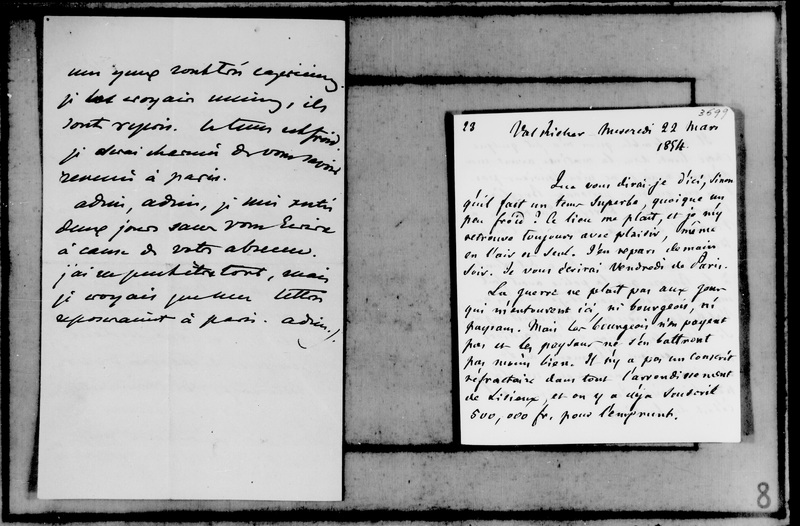 mes yeux sont très
je croyais mieux, ils
sont repris. le tems est froid
je serai charmée de vous savoir
revenu à paris.
adieu, adieu, je suis restée
deux jours sans vous écrire
à cause de votre absence.
j'ai eu peut être tort, mais
je croyais que mes lettres
reposeraient à paris. adieu.
3699
23 Val Richer Mercredi 22 Mars
1854.
Que vous dirai-je d'ici, sinon
qu'il fait un tems superbe, quoique un
peu froid ? Ce lieu me plait, et je m'y
retrouve toujours avec plaisir, même
en l'air et seul. J'en repars demain
soir. Je vous écrirai Vendredi de Paris.
La guerre ne plait pas aux gens
qui m'entourent ici, ni bourgeois, ni
paysans. Mais les bourgeois n'en payent
pas et les paysans ne s'en battront
pas moins bien. Il n'y a pas un conscrit
réfractaire dans tout l'arrondissement
de Lisieux, et on y a déja souscrit
500,000 fr. pour l'emprunt.
8